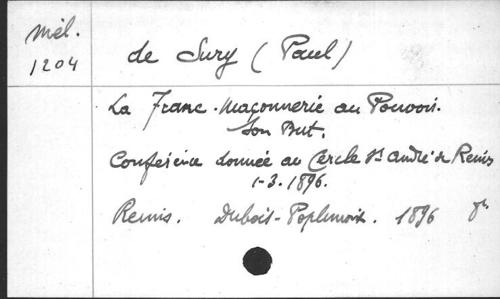 Mél.
1204
de Sury (Paul)
La Franc-Maçonnerie au Pouvoir.
Son But.
Conférence donnée au Cercle St André de Reims
1-3.1896.
Reims. Dubois-Poplimont. 1896